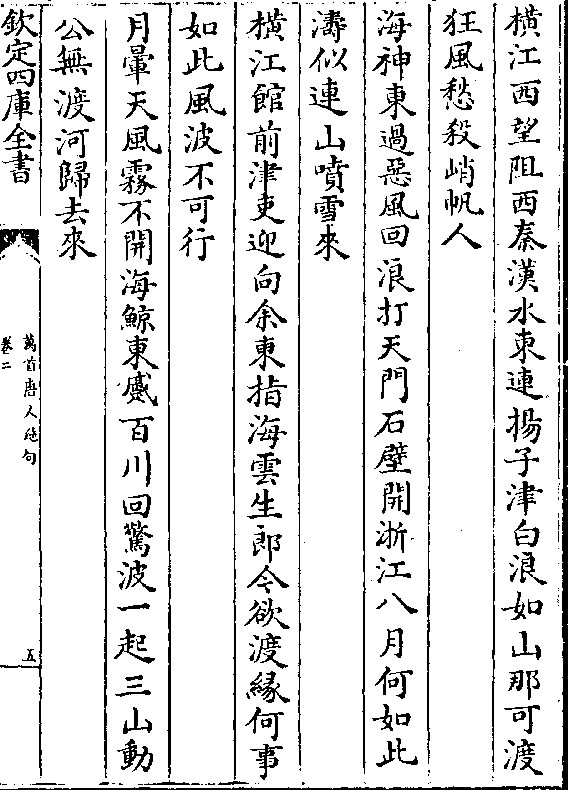 橫江西望阻西秦漢水東連揚子津白浪如山那可渡
狂風愁殺峭帆人
海神東過惡風回浪打天門石壁開浙江八月何如此
濤似連山噴雪來
橫江館前津吏迎向余東指海雲生郎今欲渡緣何事
如此風波不可行
月暈天風霧不開海鯨東蹙百川回驚波一起三山動
公無渡河歸去來
欽定四庫全書
萬首唐人絶句
卷二
五